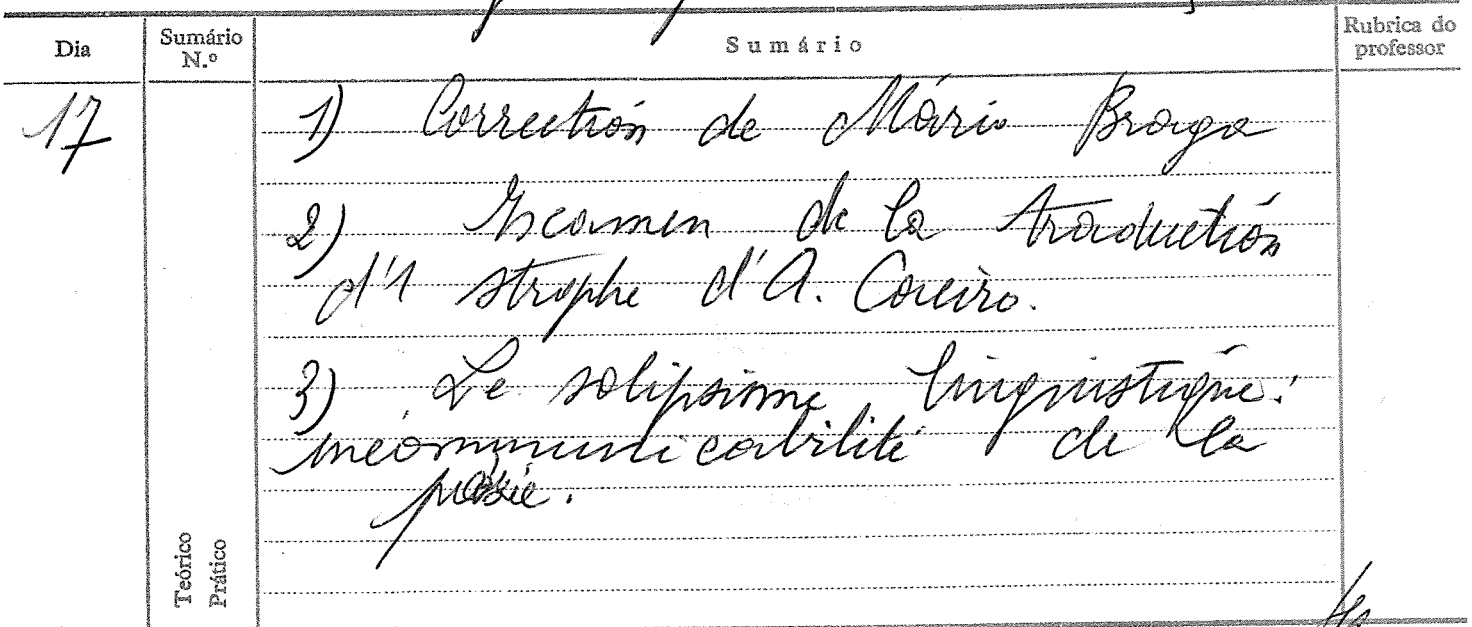 Dia
Sumário N.º
Sumário
Rubrica do professor
17
1) Correction de Mário Braga
2) Examen de la traduction
d'1 strophe d'A. Caeiro.
3) Le solipsisme linguistique:
incommunicabilité de la
poésie.
Teórico
Prático